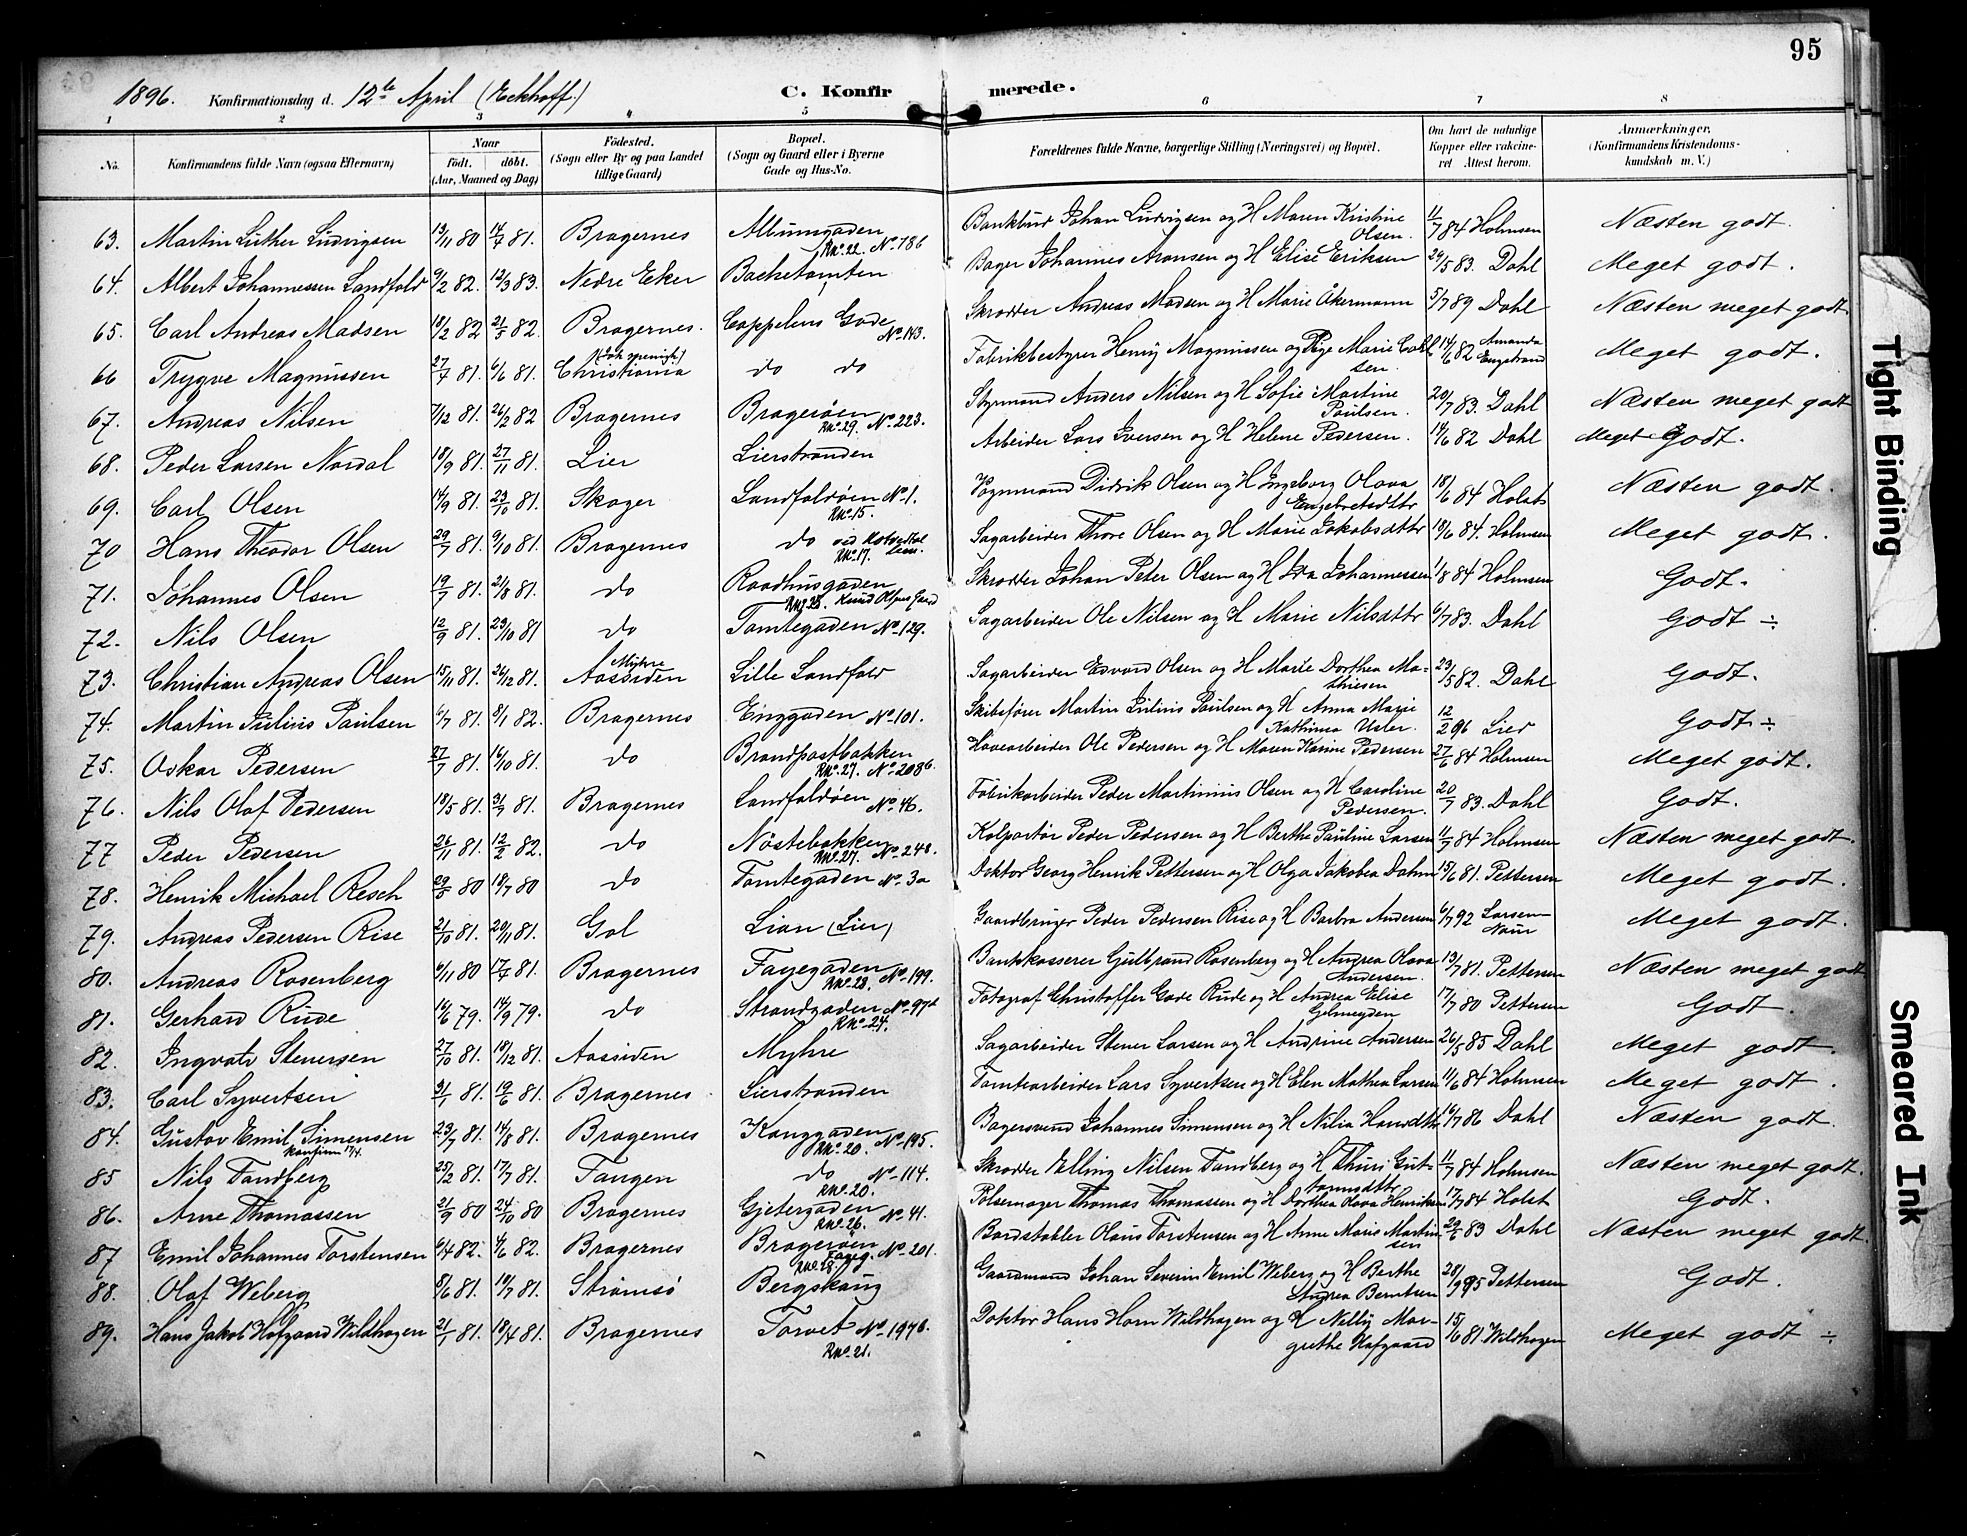 95
1896. Konfirmationsdag d. 12te April (Eckhoff.) C. Konfirmerede.
1 2 3 4 5 6 7 8
No. Konfirmandens fulde Navn (ogsaa Efternavn) Naar født. døbt. (Aar, Maaned og Dag) Fødested. (Sogn eller By og paa Landet tillige Gaard) Bopæl. (Sogn og Gaard eller i Byerne Gade og Hus-No. Forældrenes fulde Navne, borgerlige Stilling (Næringsvei) og Bopæl. Om havt de naturlige Kopper eller vaccineret Attest herom. Anmærkninger. (Konfirmandens Kristendomskundskab m. V.)
63. Martin Luther Ludvigsen 13/11 80 14/7 81. Bragernes Albumsgaden RNo. 22. No. 786 Bankbud Johan Ludvigsen og H Maren Kristine Olsen. 11/7 84 Holmsen Næsten godt.
64. Albert Johannessen Landfald 9/2 82. 12/3 83. Nedre Eker Bachetomten Bager Johannes Aronsen og H Elise Eriksen 29/5 83. Dahl Meget godt.
65. Carl Andreas Madsen 18/2 82 21/5 82. Bragernes. Cappelens Gade No. 143. Skrædder Andreas Madsen og H Marie Åkermann 5/7 89 Dahl Næsten meget godt.
66 Trygve Magnussen 27/4 81. 6/6 81. Christiania do do Fabrikbestyrer Henry Magnussen og Pige Marie Carlsen. 14/6 82 Amanda Engstrand Meget godt.
67. Andreas Nilsen 7/12 81. 26/2 82 Bragernes Bragerøen RNo. 29. No. 223. Styrmand Anders Nilsen og H Sofie Martine Paulsen. 20/7 83. Dahl Næsten meget godt
68. Peder Larsen Nordal 18/9 81. 27/11 81. Lier Lierstranden Arbeider Lars Iversen og H Helene Pedersen. 14/6 82 Dahl Meget Godt.
69. Carl Olsen 14/9 81. 23/10 81. Skoger Landfaldøen No. 1. RNo. 15. Vognmand Didrik Olsen og H Ingeborg Olava Engebretsdttr 18/6 84 Holst Næsten godt.
70 Hans Theodor Olsen 29/7 81. 9/10 81. Bragernes do RNo. 17. Sagarbeider Thore Olsen og H Marie Jakobsdttr 18/6 84. Holmsen Meget godt.
71. Johannes Olsen 19/7 81. 21/8 81. do Raadhusgaden RNo. 23. Knud Olsens Gaard Skrædder Johan Peter Olsen og H Ida Johannessen 1/8 84 Holmsen Godt.
72. Nils Olsen 12/9 81. 23/10 81 do Tomtegaden No. 129. Sagarbeider Ole Nilsen og H Marie Nilsdttr 6/7 83. Dahl Godt ÷
73. Christian Andreas Olsen 15/11 81. 26/12 81. Myhre Aassiden Lille Landfald Sagarbeider Edvard Olsen og H Marie Dorthea Mathiesen 23/5 82. Dahl Godt.
74. Martin Julius Paulsen 6/7 81. 8/1 82. Bragernes Enggaden No. 101. Skibsfører Martin Julius Paulsen og H Anna Marie Kathinca Usler. 12/2 96 Lied Godt ÷
75. Oskar Pedersen 27/7 81. 16/10 81. do Brandpostbakken RNo. 27. No. 208b. Havearbeider Ole Pedersen og H Maren Karine Pedersen 27/6 84 Holmsen Meget godt.
76. Nils Olaf Pedersen 18/5 81. 31/7 81. Bragernes Landfaldøen No. 46. Fabrikarbeider Peder Martinius Olsen og H Caroline Pedersen. 20/7 83. Dahl Godt.
77 Peder Pedersen 26/11 81. 12/2 82. do Nøstebakken RNo. 27. No. 248. Kolportør Peder Pedersen og H Berthe Pauline Larsen 11/7 84 Holmsen Næsten meget godt.
78. Henrik Michael Resch 29/5 80 18/7 80 do Tomtegaden No. 3a Doktor Georg Henrik Pettersen og H Olga Jakobea Dahm 15/6 81. Pettersen Meget godt.
79. Andreas Pedersen Rise 21/10 81. 20/11 81. Gol Lian (Lier) Gaardbruger Peder Pedersen Rise og H Barbra Andersen 6/7 92 Larsen Meget godt.
80. Andreas Rosenberg 6/11 80 17/4 81. Bragernes Fayegaden RNo. 28. No. 199. Bankkasserer Gulbrand Rosenberg og H Andrea Olava Andersen. 13/7 81. Pettersen Næsten meget godt
81. Gerhard Rude 14/6 79. 14/9 79. do Strandgaden No. 97d RNo. 24. Fotograf Christoffer Gade Rude og H Andrea Elise Gelmeyden 17/7 80 Pettersen Godt.
82. Ingvald Stenersen 27/10 81. 18/12 81. Aassiden Myhre Sagarbeider Stener Larsen og H Andrine Andersen 26/5 85 Dahl Meget godt.
83. Carl Syvertsen 3/1 81. 19/6 81. Bragernes Lierstranden Tomtearbeider Lars Syvertsen og H Elen Mathea Larsen 11/6 84 Holmsen Meget godt.
84. Gustav Emil Simensen Konfirm 17/4. 23/7 81. 14/8 81. Bragernes Konggaden RNo. 20. No. 195. Bagersvend Johannes Simensen og H Nilia Hansdttr 16/7 86 Dahl Næsten godt.
85 Nils Tandberg 25/2 81. 17/7 81. Tangen do No. 114. RNo. 20. Skrædder Elling Nilsen Tandberg og H Thuri Guttormsdttr 11/7 84 Holmsen Næsten meget godt.
86. Arne Thomassen 21/9 80 24/10 80 Bragernes Gjetergaden RNo. 26. No. 41. Pølsemager Thomas Thomassen og H Dorthea Olava Henriksen 17/7 84 Holst Godt.
87 Emil Johannes Torstensen 6/4 82. 4/6 82. Bragernes Bragerøen RNo. 28. No. 201. Bordstabler Olaus Torstensen og H Anne Marie Martinsen 29/6 83 Dahl Næsten meget godt.
88. Olaf Weberg 8/6 81. 10/7 81. Strømsø Bergskaug Gaardmand Johan Severin Emil Weberg og H Berthe Andrea Berntsen 28/9 95 Pettersen Godt.
89. Hans Jakob Hofgaard Wildhagen 21/1 81. 18/4 81. Bragernes Torvet No. 197b. RNo. 21. Doktor Hans Horn Wildhagen og H Nelly Margrethe Hofgaard 15/6 81. Wildhagen Meget godt ÷
Tight Binding
Smeared Ink